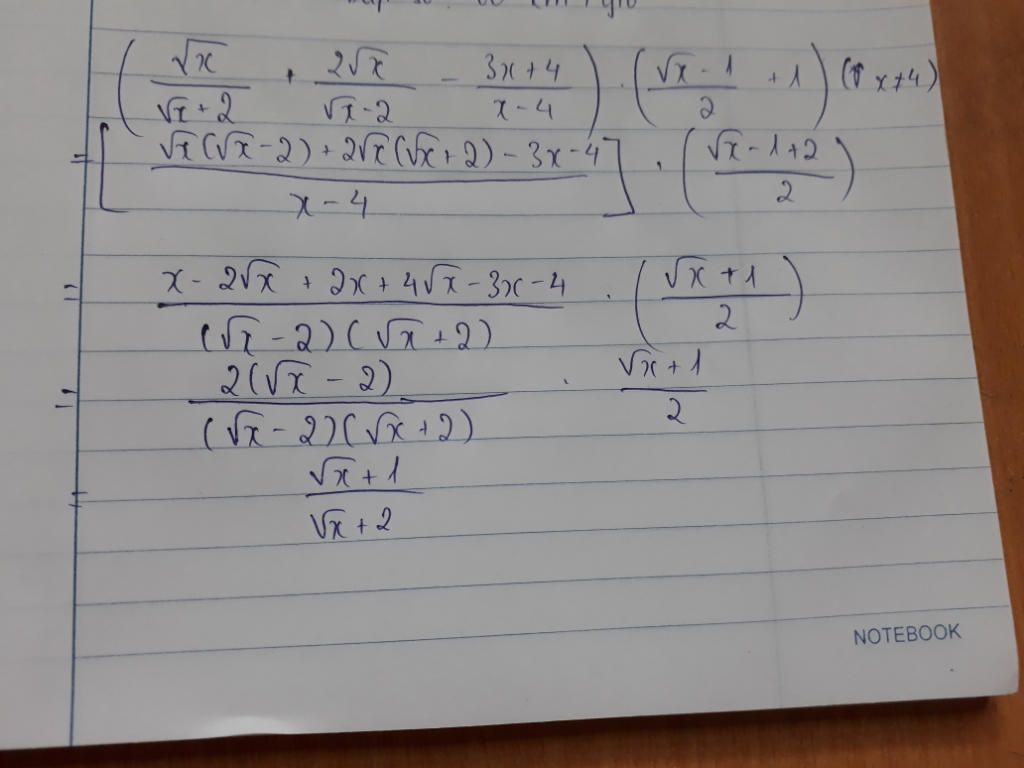 (√x/(√x+2) + 2√x/(√x-2) - (3x+4)/(x-4)) · ((√x-1)/2 + 1) (x≠4)
= [(√x(√x-2)+2√x(√x+2)-3x-4)/(x-4)] · ((√x-1+2)/2)
= (x-2√x+2x+4√x-3x-4)/((√x-2)(√x+2)) · ((√x+1)/2)
= 2(√x-2)/((√x-2)(√x+2)) · (√x+1)/2
= (√x+1)/(√x+2)
NOTEBOOK